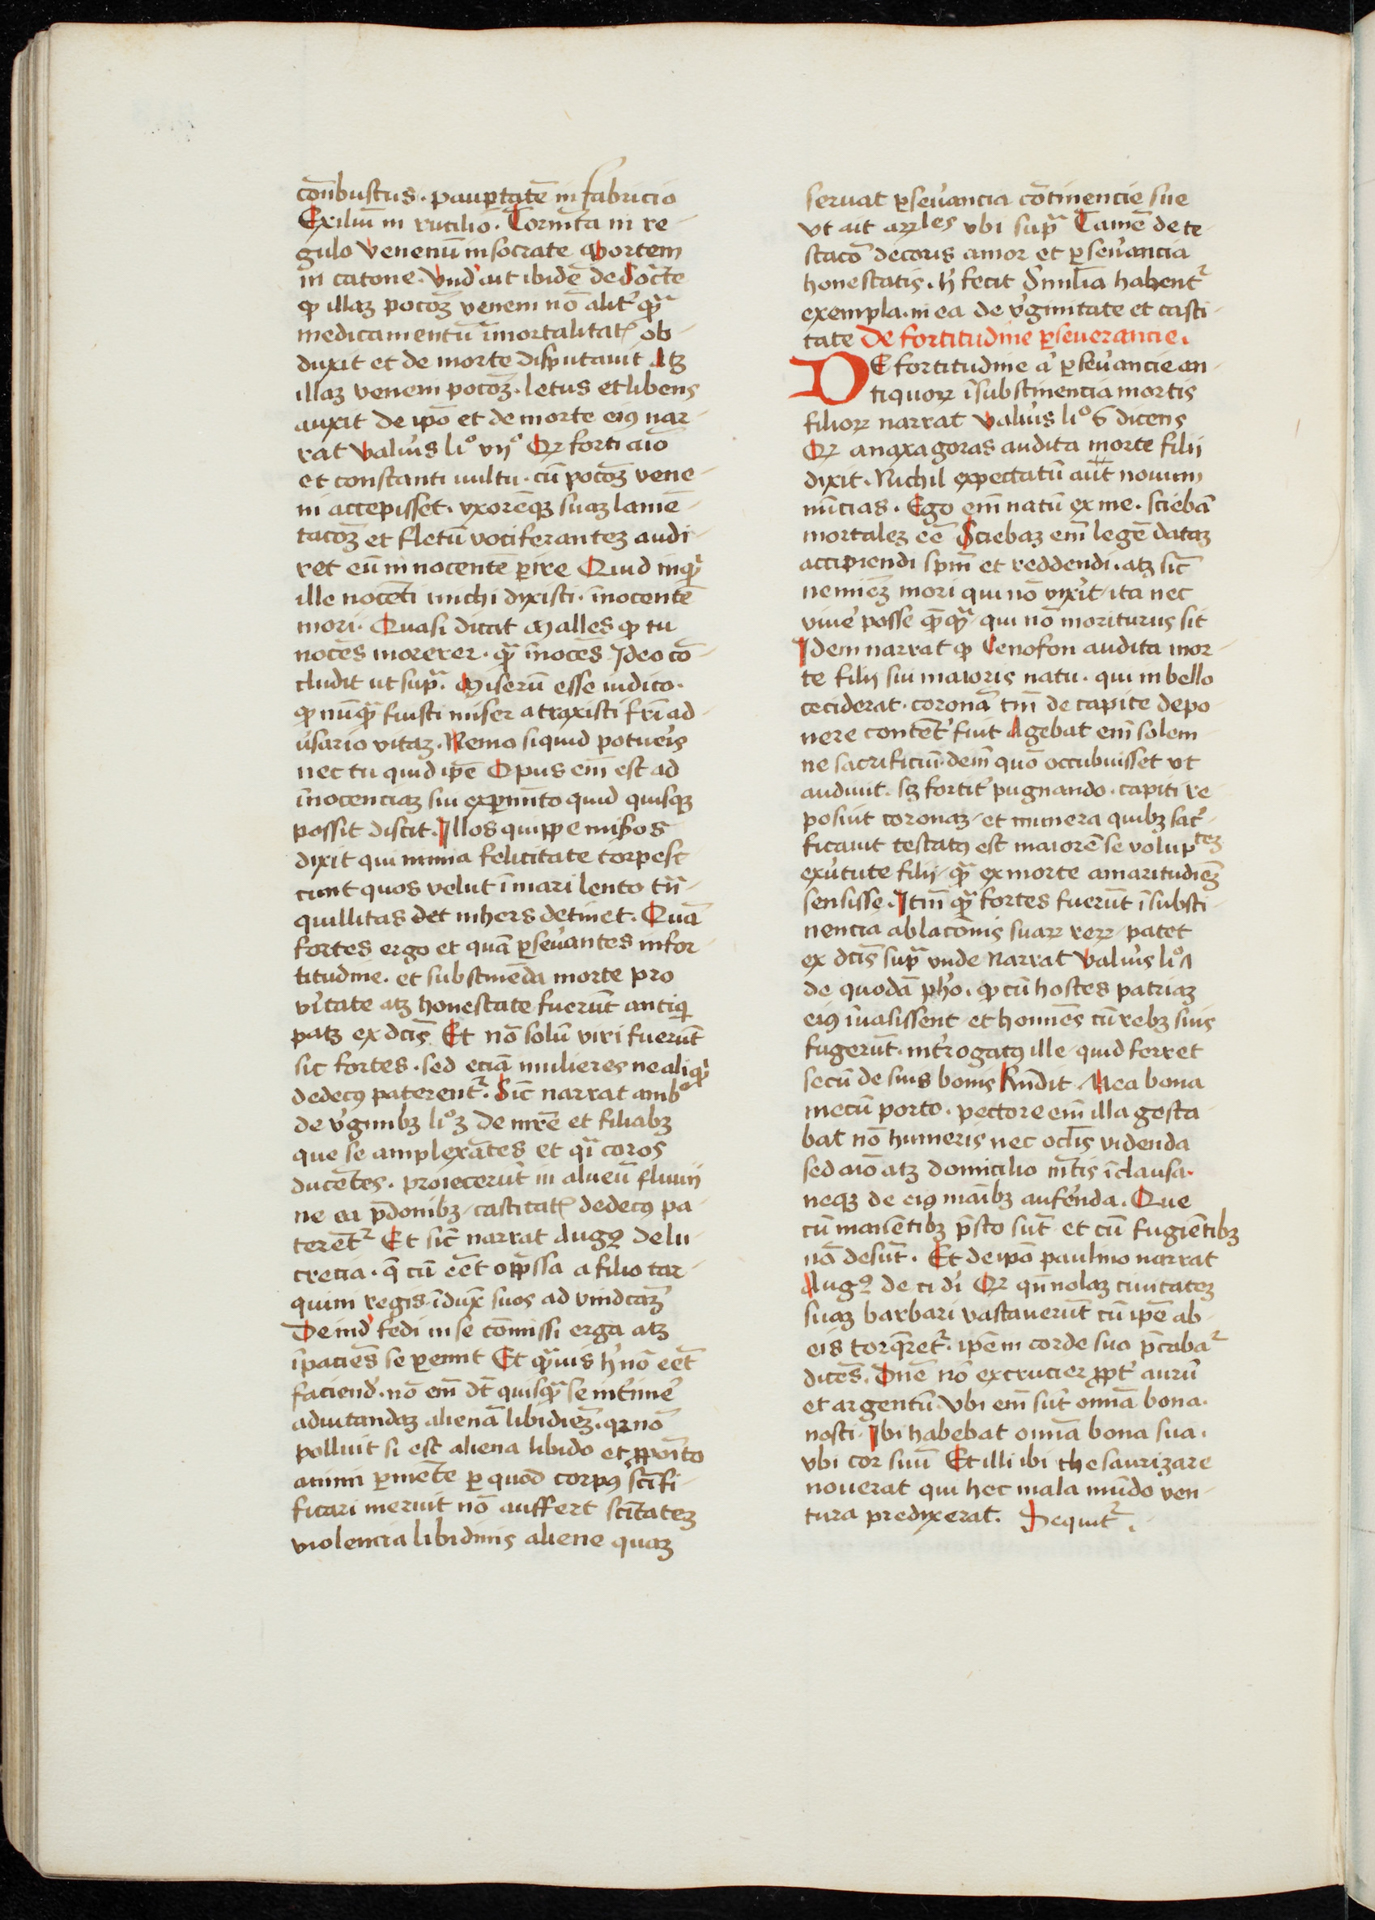 com̄bustus. paup̄tatē in fabricio
Exiliū in rutilio. Torm̄ta in re-
gulo venenū in socrate Mortem
in catone. Vnd̓ ait ibidē de Socrate
qꝫ illaꝫ pocōꝫ venem nō alit̓ qͣꝫ
medicamentū īmortalitatꝭ ob-
duxit et de morte disputauit Itꝫ
illaꝫ venem pocōꝫ. letus et libens
auxit de ip̄o et de morte eiꝰ nar-
rat valiꝰ liº vijº Qꝫ forti aīo
et constanti uultu. cū pocōꝫ vene-
ni accepisset. vxorēqꝫ suaꝫ lamē-
tacōꝫ et fletū vociferanteꝫ audi-
ret eū innocentē ꝑire Quid inqͥ
ille nocēti michi dixisti. īnocentē
mori. Quasi dicat Malles qꝫ tu
nocēs morerer. qͣꝫ īnocēs Ideo cō-
cludit ut supͣ. Miserū esse iudico.
qꝫ nūqͣꝫ fuisti miser atraxisti frī ad-
u̓sario vitaꝫ. Nemo siquid potue̓is
nec tu quid ip̄e Opus em̄ est ad
īnocenciaꝫ sui expim̄to quid quisqꝫ
possit discit. Illos quippe miẞos
dixit qui nimia felicitate torpesc
cunt quos velut ī mari lento tn̄-
quillitas det inhers detinet. Quā
fortes ergo et quā ꝑseu̓antes in for-
titudine. et substinēda morte pro
vi̓tate atꝫ honestate fuerūt antiqͥ
patꝫ ex dc̄is Et nō solū viri fuerūt
sic fortes. sed eciā mulieres ne aliqͥ
dedecꝰ paterentꝛ. Sic̄ narrat ambº
de v̓ginibꝫ liº 3 de mr̄e et filiabꝫ
que se amplexātes et qͣi coros
ducētes. proiecerūt in alueū fluuij
ne ea p̄donibꝫ castitatꝭ dedecꝰ pa-
terētꝛ Et sic̄ narrat Augꝰ de lu-
crecia. q̄ cū eēt opp̄ssa a filio tar-
quini regis. īdux̄ suos ad vindcāꝫ
Deind̓ fedi in se cōmissi erga atꝫ
īpaciēs se ꝑemit Et qͣꝫuis h̓ nō eēt
faciend̓. nō em̄ dt̄ quisqͣꝫ se int̓ime̓
ad uitandaꝫ alienā libidiēꝫ. qꝛ nō
polluit si est aliena libido et ꝓpoīto
animi ꝑmēte ꝑ quod corpꝰ sc̄ifi-
ficari meruit nō auffert sc̄itateꝫ
violencia libidinis aliene quaꝫ
seruat ꝑseu̓ancia cōtinencie sue
vt ait aꝛꝛles vbi supͣ Tamē dete-
stacō decoris amor et ꝑseu̓ancia
honestatis. h̓ fecit Similia habentꝛ
exempla. in ea de v̓ginitate et casti-
tate De fortitudine ꝑseuerancie.
DE fortitudine a̓ ꝑseu̓ancie an-
tiquoꝝ ī substinencia mortis
filioꝝ narrat valiꝰ liº 6 dicens
Qꝫ anaxagoras audita morte filij
dixit. Nichil expectatū aut nouum
nūcias. Ego em̄ natū ex me. sciebā
mortaleꝫ eē Sciebaꝫ em̄ legē dataꝫ
accipiendi spm̄ et reddendi. atꝫ sic̄
neminēꝫ mori qui nō vixit̓ ita nec
viue̓ posse qēqͣꝫ qui nō moriturus sit
Idem narrat qꝫ Cenofon audita mor-
te filij sui maioris natu. qui in bello
ceciderat. coronā tm̄ de capite depo-
nere contēt̓ fuit Agebat em̄ solem-
ne sacrificiū. dem̄ quō occubuisset vt
audiuit. sꝫ fortit̓ pugnando. capiti re-
posiut coronaꝫ et munera quibꝫ sac̓-
ficauit testatꝰ est maiorē se voluptꝫ
ex v̓tute filij qͣꝫ ex morte amaritudiēꝫ
sensisse. Itm̄ qͣꝫ fortes fuerūt ī substi-
nencia ablacōnis suaꝝ reꝝ patet
ex dc̄is supͣ vnde narrat valiꝰ liº
de quodā pho. qꝫ cū hostes patriaꝫ
eiꝰ īuasissent et homnēs cū rebꝫ suis
fugerūt. int̓rogatꝰ ille quid ferret
secū de suis bonis Rn̄dit Mea bona
mecū porto. pectore em̄ illa gesta-
bat nō humeris nec oc̄lis videnda
sed aīo atꝫ domicilio mn̄tis īclausa.
neqꝫ de eiꝰ manībꝫ aufe̓nda. Que
cū manētibꝫ p̄sto sūt et cū fugiētibꝫ
nō desūt. Et de ip̄o paulino narrat
Augꝰ de ci di̓ Qꝫ qn̄ nolaꝫ ciuitateꝫ
suaꝫ barbari vastauerūt cū ip̄e ab
eis torq̄retꝛ. ip̄e in corde suo p̄cabaꝛ
dicēs. Dn̄e nō excrucier ꝓpt̓ aurū
et argentū. Vbi em̄ sūt omīa bona.
nosti. Ibi habebat omīa bona sua.
vbi cor suū Et illi ibi thesaurizare
nouerat qui hec mala mūdo ven-
tura predixerat. Sequitꝛ.